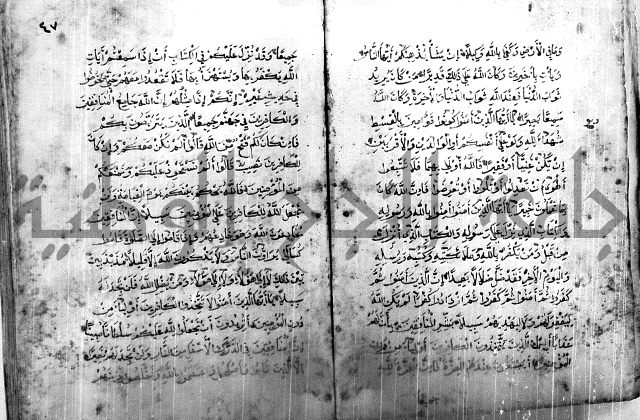 وما في الأرض وكفى بالله وكيلا إن يشأ يذهبكم أيها الناس
ويأت بآخرين وكان الله على ذلك قديرا من كان يريد
ثواب الدنيا فعند الله ثواب الدنيا والآخرة وكان الله
سميعا بصيرا يا أيها الذين آمنوا كونوا قوامين بالقسط
شهداء لله ولو على أنفسكم أو الوالدين والأقربين
إن يكن غنيا أو فقيرا فالله أولى بهما فلا تتبعوا
الهوى أن تعدلوا وإن تلووا أو تعرضوا فإن الله كان
بما تعملون خبيرا يا أيها الذين آمنوا آمنوا بالله ورسوله
والكتاب الذي نزل على رسوله والكتاب الذي أنزل
من قبل ومن يكفر بالله وملائكته وكتبه ورسله
واليوم الآخر فقد ضل ضلالا بعيدا إن الذين آمنوا ثم
كفروا ثم آمنوا ثم كفروا ثم ازدادوا كفرا لم يكن الله
ليغفر لهم ولا ليهديهم سبيلا بشر المنافقين بأن لهم
عذابا أليما الذين يتخذون الكافرين أولياء من دون
المؤمنين أيبتغون عندهم العزة فإن العزة لله
جميعا
٤٧
جميعا وقد نزل عليكم في الكتاب أن إذا سمعتم آيات
الله يكفر بها ويستهزأ بها فلا تقعدوا معهم حتى يخوضوا
في حديث غيره إنكم إذا مثلهم إن الله جامع المنافقين
والكافرين في جهنم جميعا الذين يتربصون بكم
فإن كان لكم فتح من الله قالوا ألم نكن معكم وإن كان
للكافرين نصيب قالوا ألم نستحوذ عليكم ونمنعكم
من المؤمنين فالله يحكم بينكم يوم القيامة ولن
يجعل الله للكافرين على المؤمنين سبيلا إن المنافقين
يخادعون الله وهو خادعهم وإذا قاموا إلى الصلاة قاموا
كسالى يراءون الناس ولا يذكرون الله إلا قليلا مذبذبين
بين ذلك لا إلى هؤلاء ولا إلى هؤلاء ومن يضلل الله فلن تجد له
سبيلا يا أيها الذين آمنوا لا تتخذوا الكافرين أولياء من
دون المؤمنين أتريدون أن تجعلوا لله عليكم سلطانا مبينا
إن المنافقين في الدرك الأسفل من النار ولن تجد لهم نصيرا
إلا الذين تابوا وأصلحوا واعتصموا بالله وأخلصوا دينهم
جامعة النجاح الوطنية